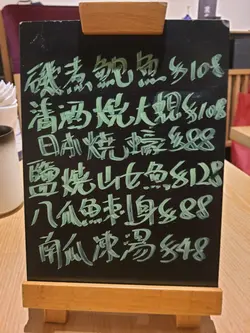 磯煮鮑魚$108
清酒燒大蜆$108
日本燒蠔$88
鹽燒山女魚$128
八爪魚刺身$88
南瓜凍湯$48